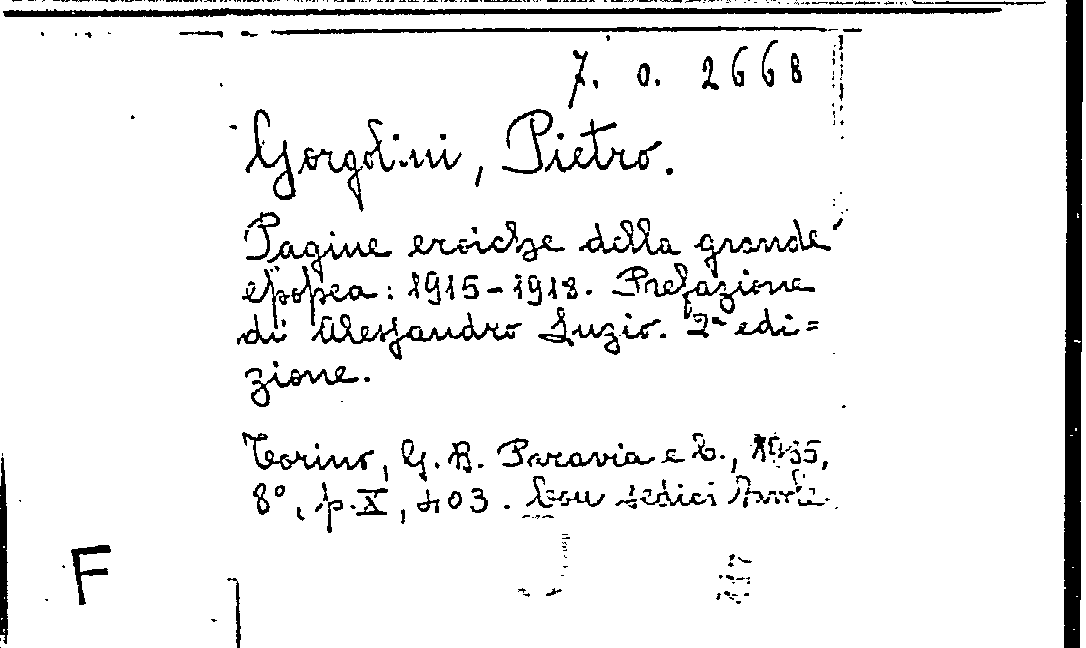 7. o. 2668
Gorgolini, Pietro.
Pagine eroiche della grande
epopea: 1915-1918. Prefazione
di Alessandro Luzio. 2ª edi=
zione.
Torino, G. B. Paravia e C., 1935,
8°, p. X, 403. Con sedici tavole.
F